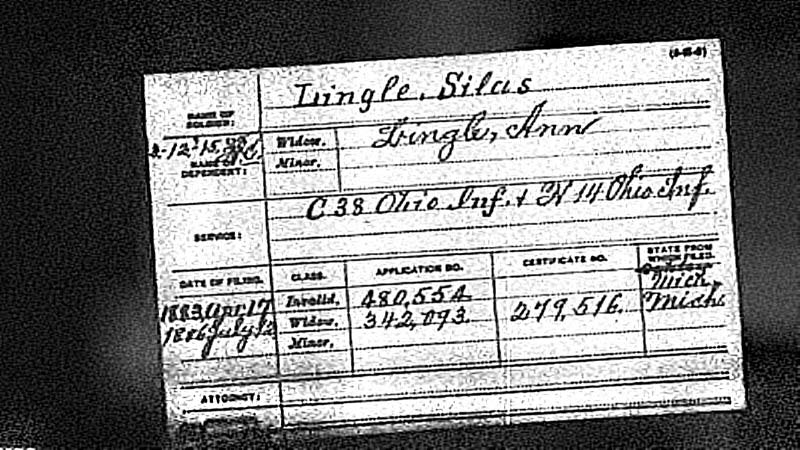 (3-18-6)
NAME OF SOLDIER: Lingle, Silas
NAME OF DEPENDENT: Widow, Lingle, Ann
Minor,
SERVICE: C 38 Ohio Inf. & H 14 Ohio Inf.
DATE OF FILING. CLASS. APPLICATION NO. CERTIFICATE NO. STATE FROM WHICH FILED.
1883 Apr 17 Invalid, 480,554 Mich
1886 July 12 Widow, 342,093. 279,516. Mich.
Minor,
ATTORNEY: